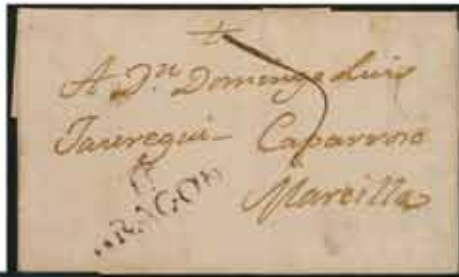 A Dn. Domingo Luis
Jauregui Caparroso
Marcilla
ARAGON